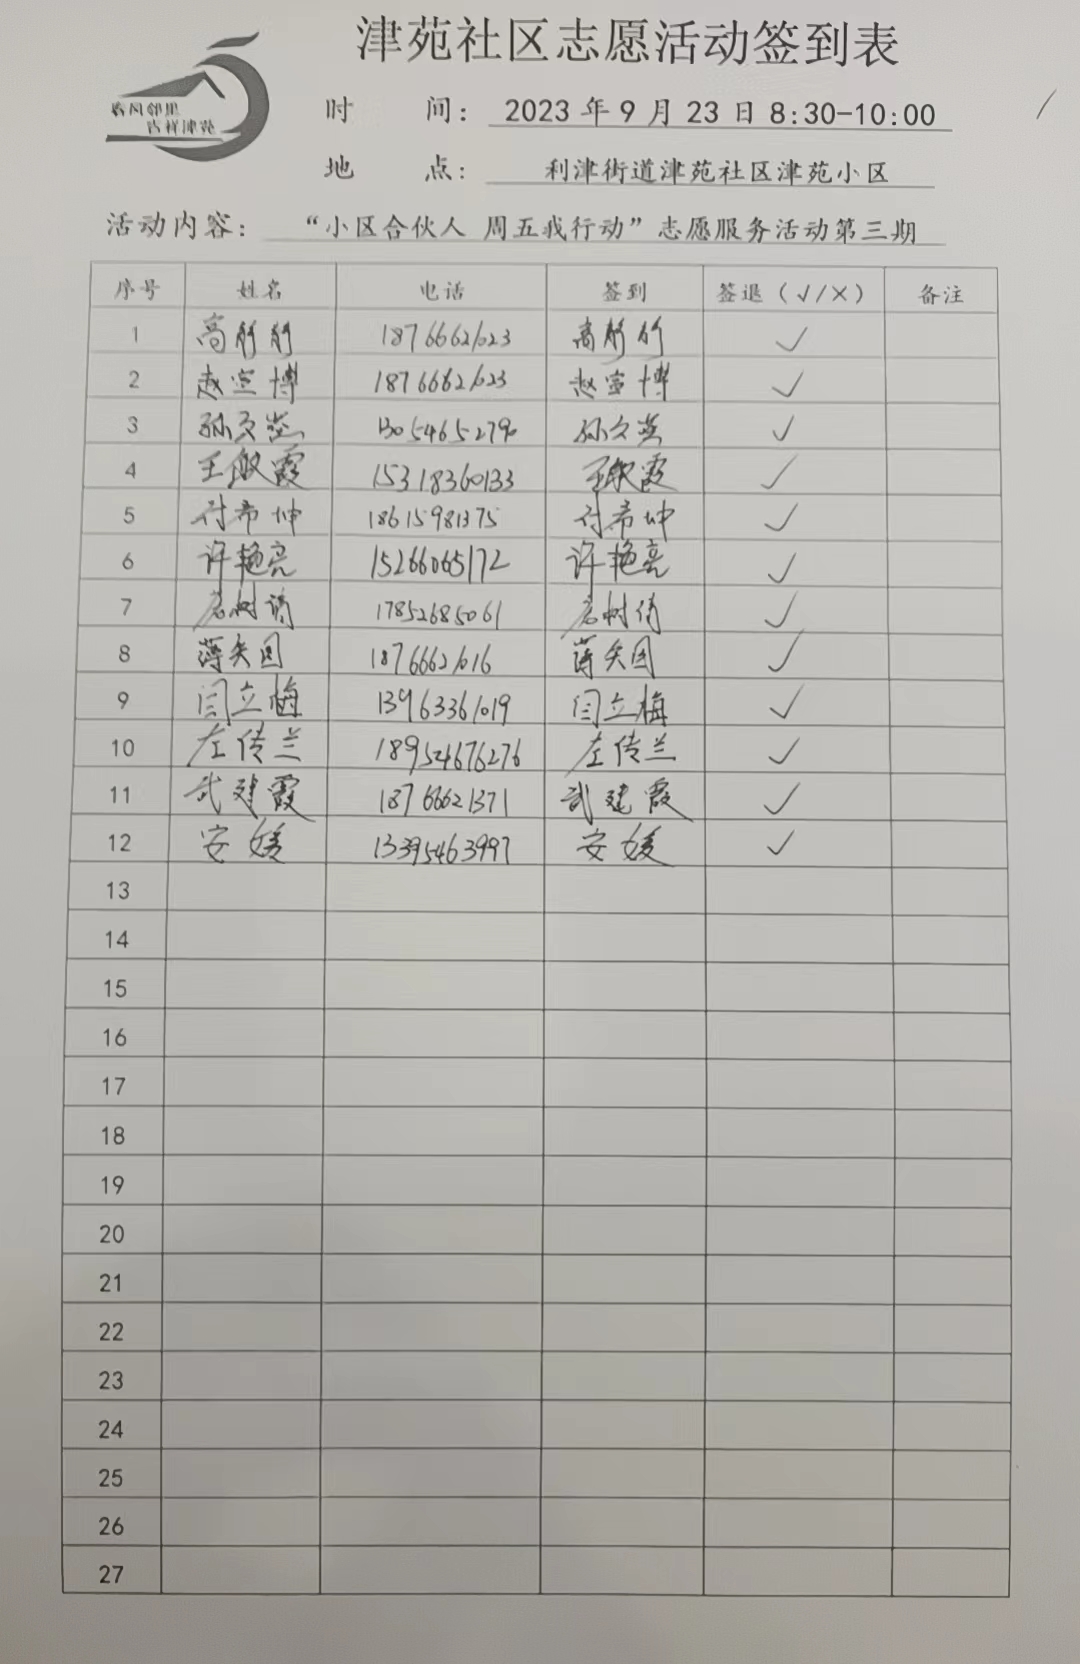 津苑社区志愿活动签到表
春风邻里
吉祥津苑
时 间: 2023年9月23日8:30-10:00
地 点: 利津街道津苑社区津苑小区
活动内容: “小区合伙人 周五我行动”志愿服务活动第三期
序号 姓名 电话 签到 签退(√/×) 备注
1 高 18766621623 高 ✓
2 赵宣博 18766621623 赵宣博 ✓
3 孙文英 13054652790 孙文英 ✓
4 王敏霞 15318360133 王敏霞 ✓
5 付希坤 18615981375 付希坤 ✓
6 许艳亮 15266065172 许艳亮 ✓
7 树 17852685061 树倩 ✓
8 薄 国 18766621616 薄 国 ✓
9 闫立梅 13963361019 闫立梅 ✓
10 左传兰 18954676276 左传兰 ✓
11 武建霞 18766621371 武建霞 ✓
12 安媛 13395463997 安媛 ✓
13
14
15
16
17
18
19
20
21
22
23
24
25
26
27